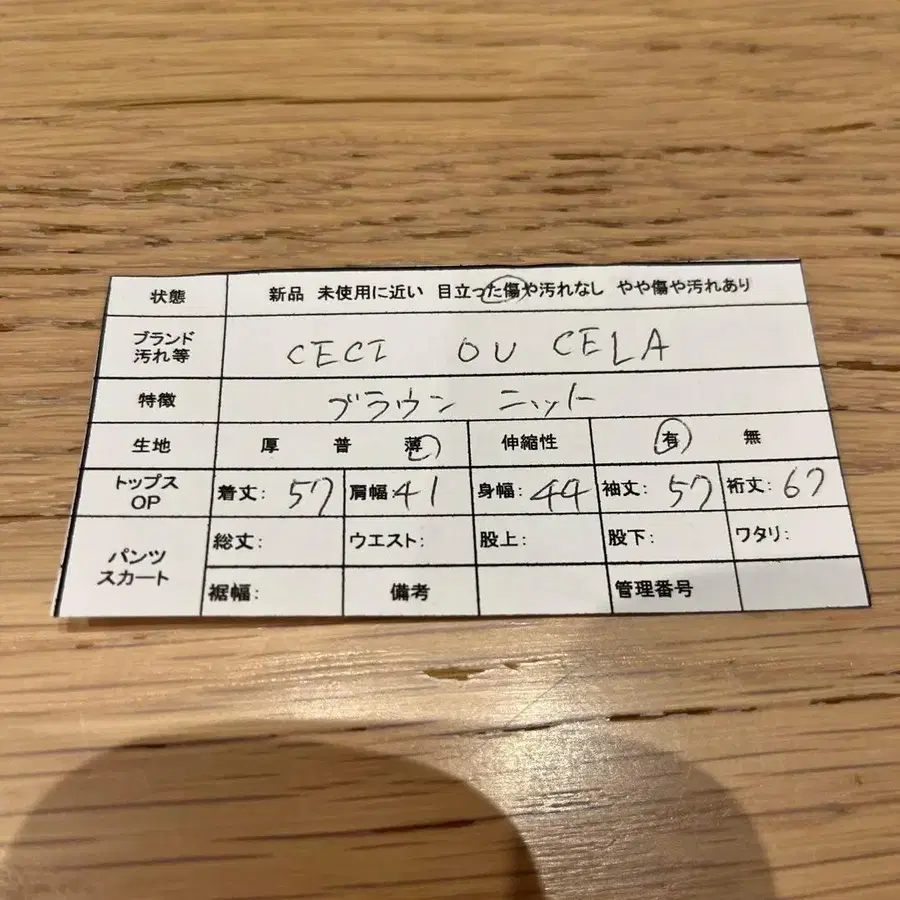 状態 新品 未使用に近い 目立った傷や汚れなし やや傷や汚れあり
ブランド
汚れ等 CECI OU CELA
特徴 ブラウン ニット
生地 厚 普 薄 伸縮性 有 無
トップス
OP 着丈: 57 肩幅: 41 身幅: 44 袖丈: 57 裄丈: 67
パンツ
スカート 総丈: ウエスト: 股上: 股下: ワタリ:
裾幅: 備考 管理番号